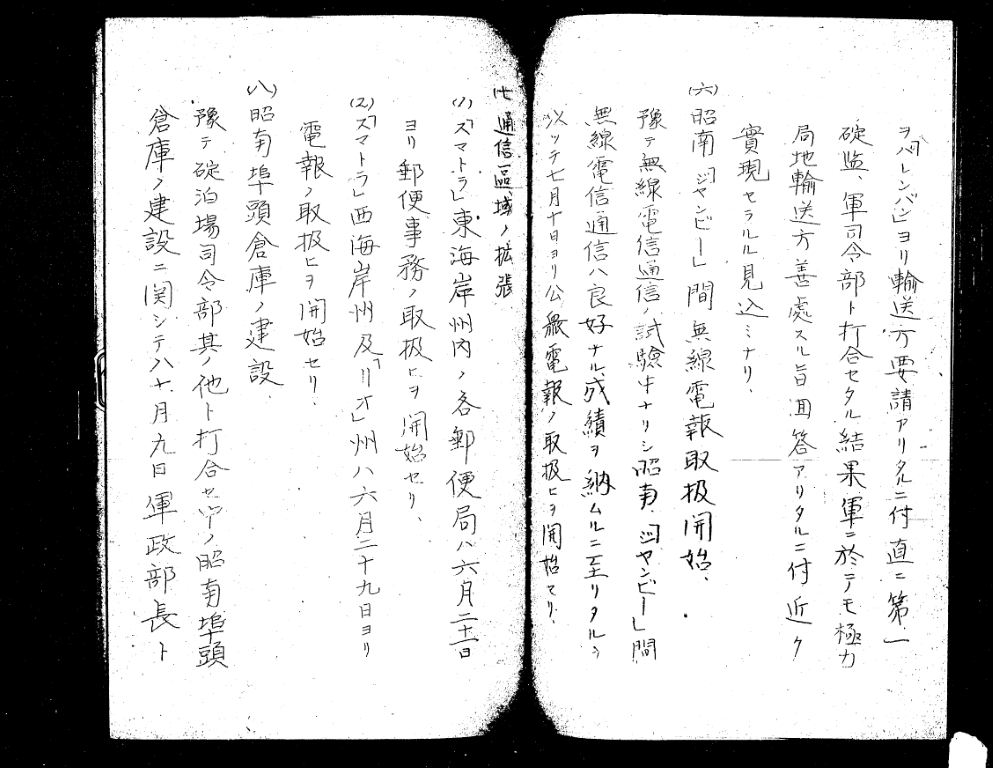 ヲ「パレンバン」ヨリ輸送方要請アリタルニ付直ニ第一
碇監、軍司令部ト打合セタル結果軍ニ於テモ極力
局地輸送方善處スル旨回答アリタルニ付近ク
實現セラルル見込ミナリ、
(六)昭南「ジャンビー」間無線電報取扱開始、
豫テ無線電信通信ノ試驗中ナリシ昭南、「ジャンビー」間
無線電信通信ハ良好ナル成績ヲ納ムルニ至リタルヲ
以ッテ七月十日ヨリ公衆電報ノ取扱ヒヲ開始セリ、
(七)通信區域ノ拡張
(1)「スマトラ」東海岸州内ノ各郵便局ハ六月二十一日
ヨリ郵便事務ノ取扱ヒヲ開始セリ、
(2)「スマトラ」西海岸州及「リオ」州ハ六月二十九日ヨリ
電報ノ取扱ヒヲ開始セリ、
(八)昭南埠頭倉庫ノ建設
豫テ碇泊場司令部其ノ他ト打合セ中ノ昭南埠頭
倉庫ノ建設ニ関シテハ七月九日軍政部長ト